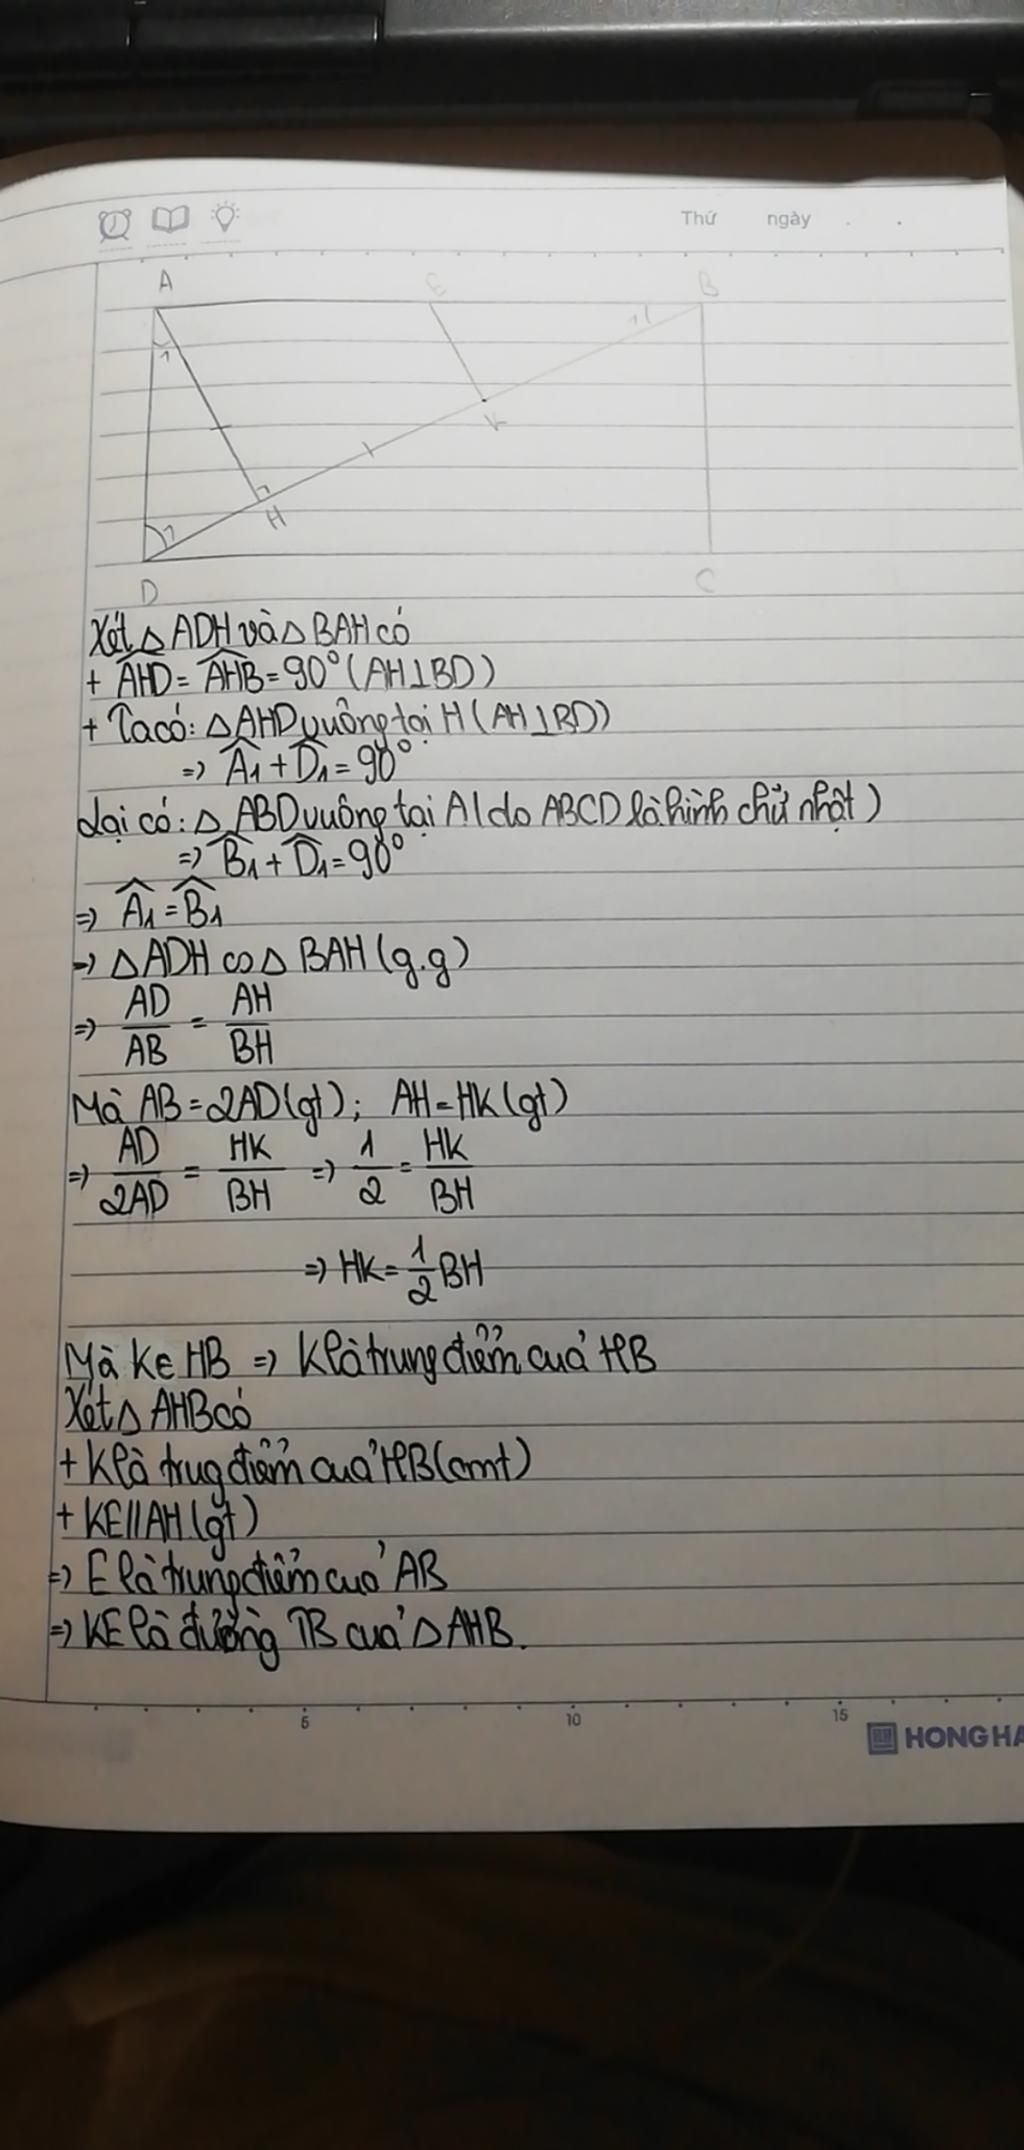 Thứ ngày . .
A E B
1 1
K
H
1
D C
Xét △ ADH và △ BAH có
+ AHD = AHB = 90° (AH⊥BD)
+ Ta có: △ AHD vuông tại H (AH⊥BD)
=> A1 + D1 = 90°
Lại có: △ ABD vuông tại A (do ABCD là hình chữ nhật)
=> B1 + D1 = 90°
=> A1 = B1
=> △ ADH ∽ △ BAH (g.g)
=> AD/AB = AH/BH
Mà AB = 2AD (gt); AH = HK (gt)
=> AD/2AD = HK/BH => 1/2 = HK/BH
=> HK = 1/2 BH
Mà K∈HB => K là trung điểm của HB
Xét △ AHB có
+ K là trug điểm của HB (cmt)
+ KE // AH (gt)
=> E là trung điểm của AB
=> KE là đường TB của △ AHB.
5 10 15
HONG HA